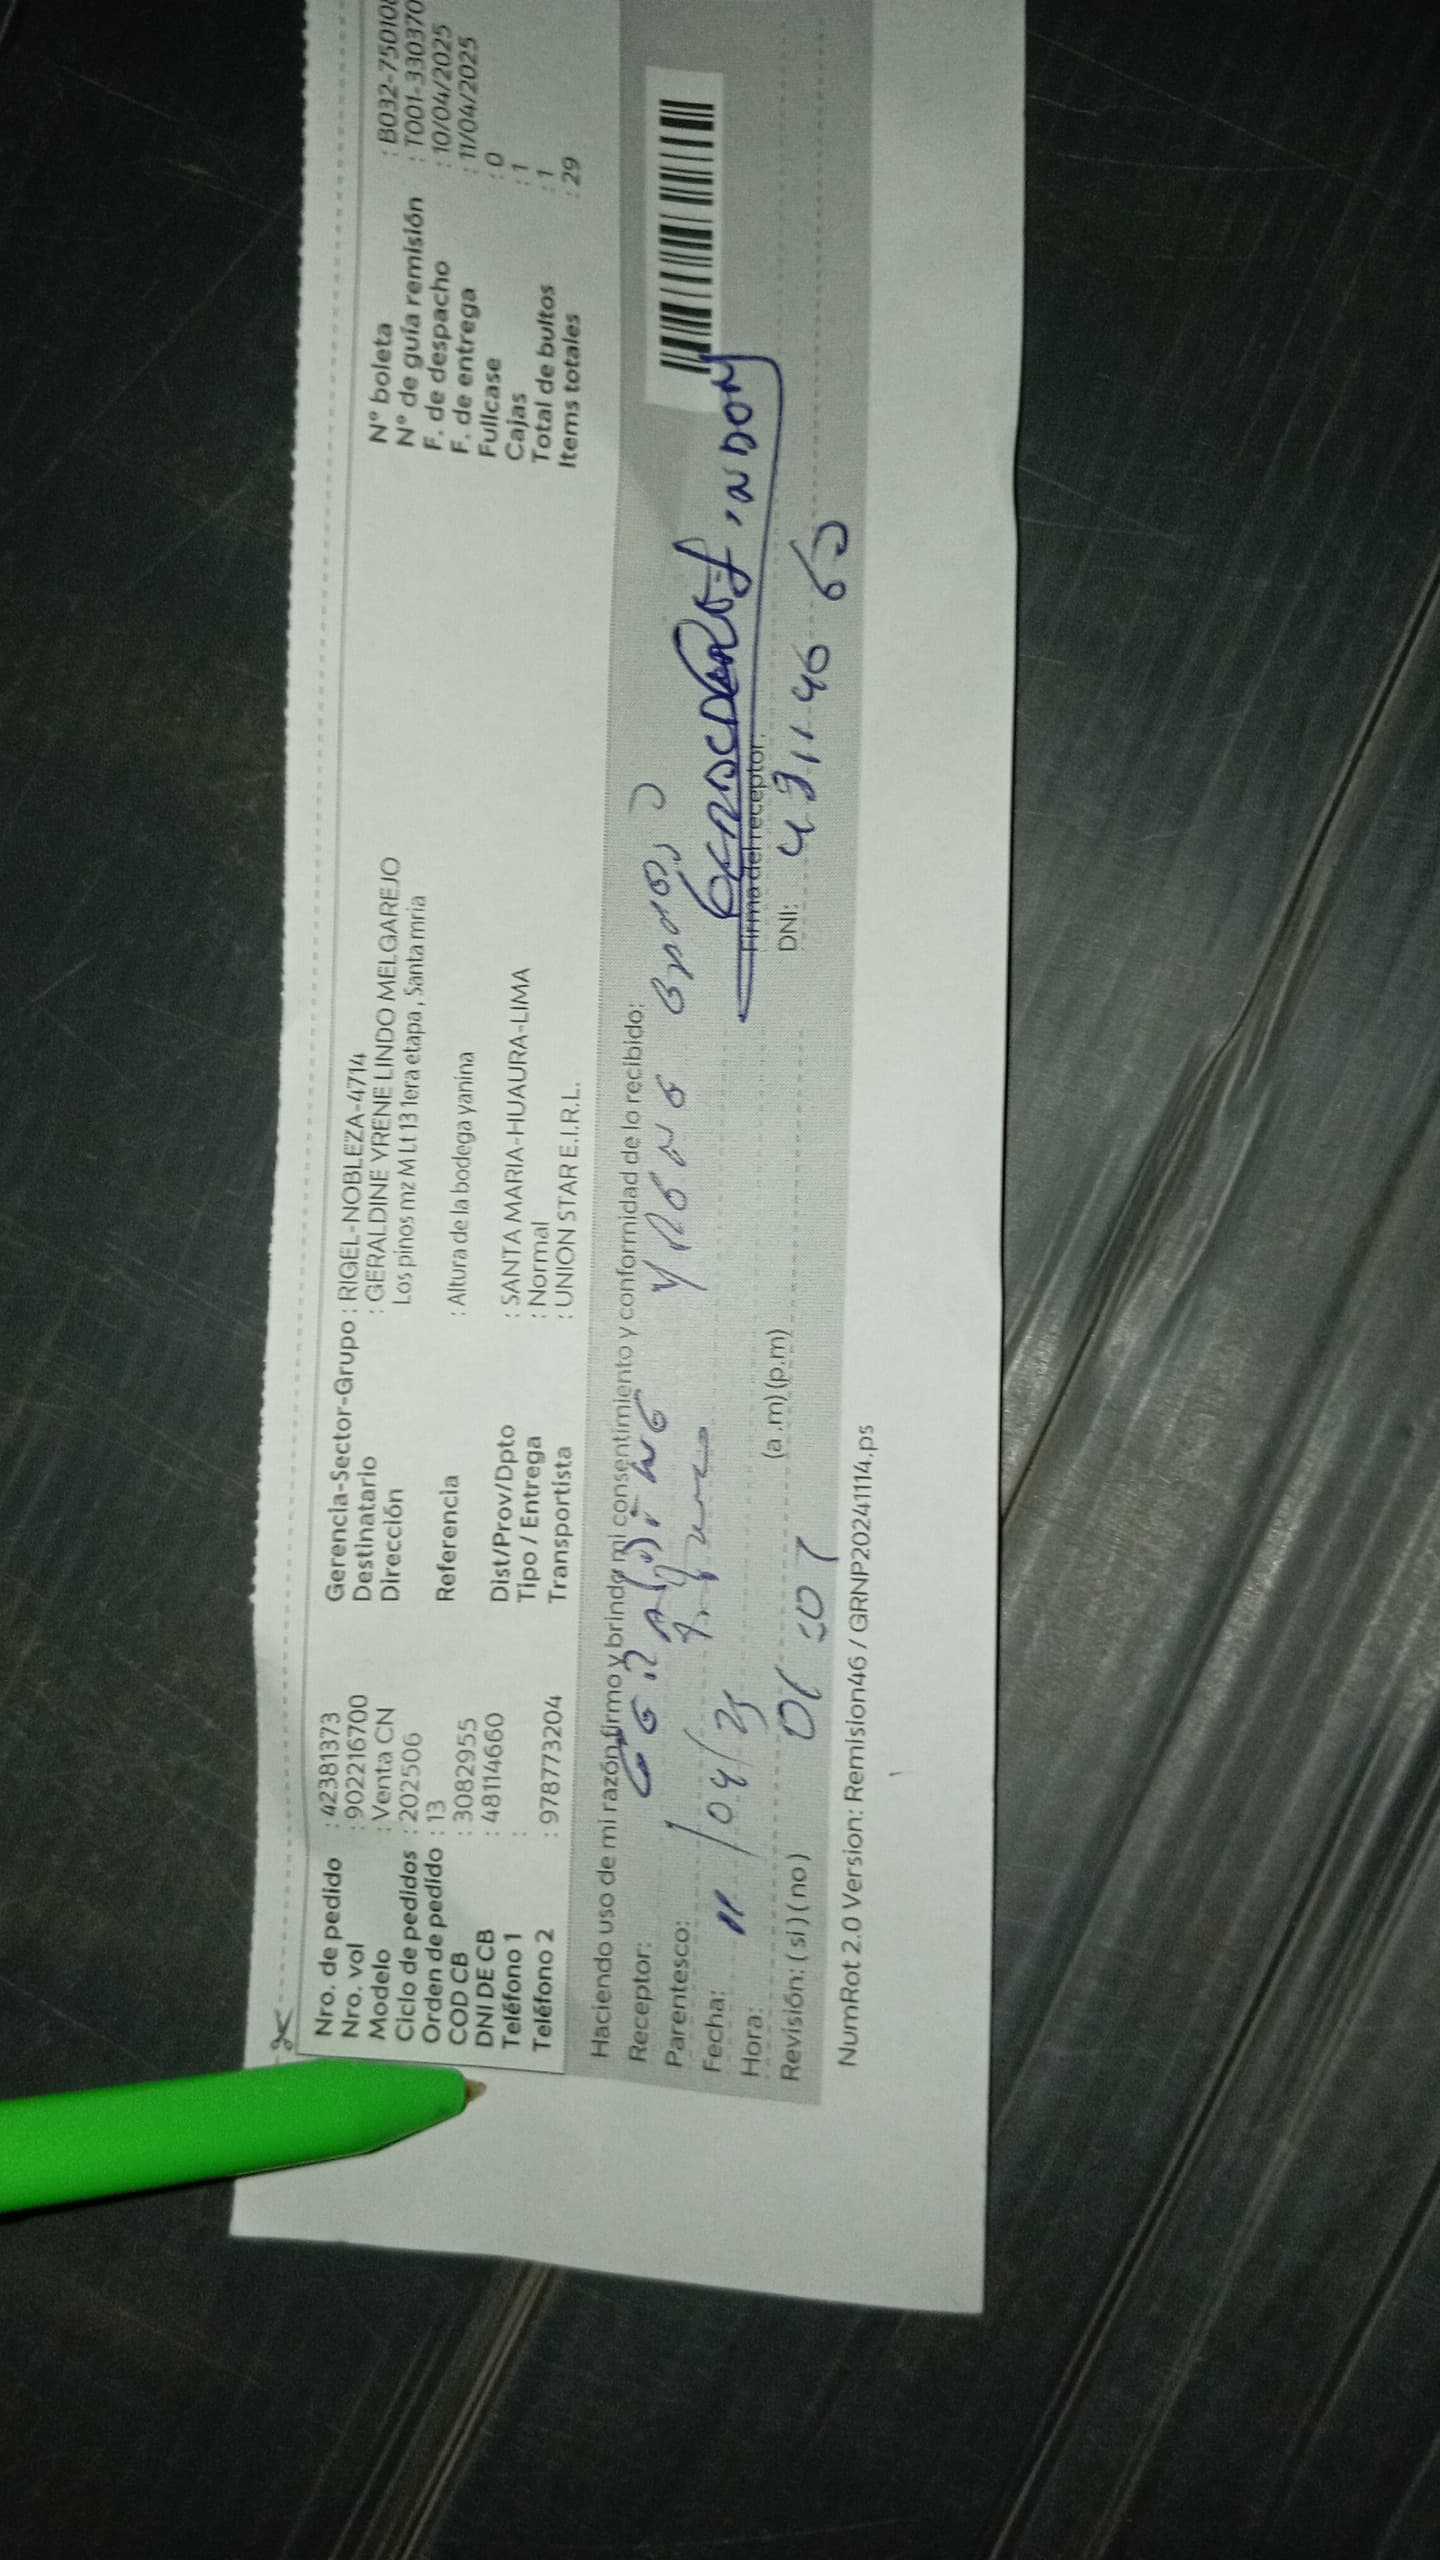 Nro. de pedido : 42381373 Gerencia-Sector-Grupo : RIGEL-NOBLEZA-4714
Nro. vol : 902216700 Destinatario : GERALDINE YRENE LINDO MELGAREJO Nº boleta : B032-75010
Modelo : Venta CN Dirección Los pinos mz M Lt 13 1era etapa , Santa mria Nº de guía remisión : T001-330370
Ciclo de pedidos : 202506 F. de despacho : 10/04/2025
Orden de pedido : 13 Referencia : Altura de la bodega yanina F. de entrega : 11/04/2025
COD CB : 3082955 Fullcase : 0
DNI DE CB : 48114660 Dist/Prov/Dpto : SANTA MARIA-HUAURA-LIMA Cajas : 1
Teléfono 1 : Tipo / Entrega : Normal Total de bultos : 1
Teléfono 2 : 978773204 Transportista : UNION STAR E.I.R.L. Items totales : 29
Haciendo uso de mi razón, firmo y brindo mi consentimiento y conformidad de lo recibido:
Receptor:
Parentesco:
Fecha: 11/04/25 Firma del receptor:
Hora: (a.m) (p.m) DNI:
Revisión: ( si ) ( no )
NumRot 2.0 Version: Remision46 / GRNP20241114.ps